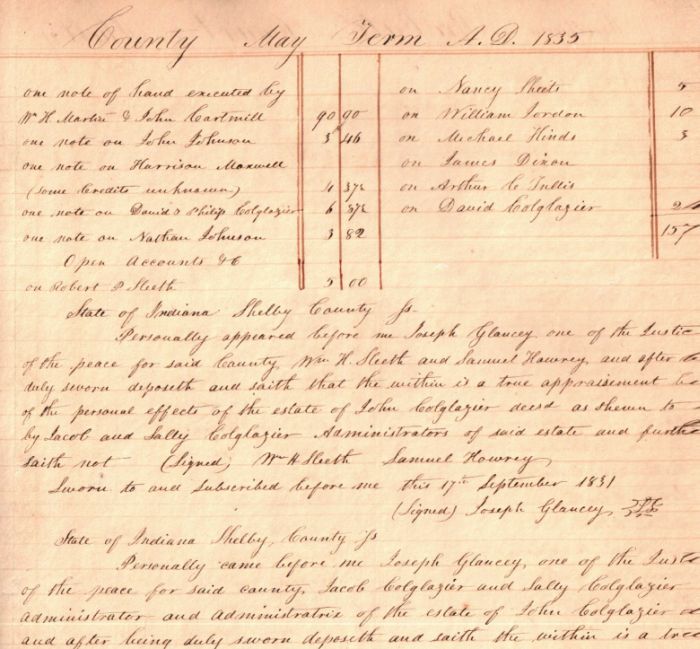 County May Term A.D. 1835
one note of hand executed by
Wm H Martin & John Cartmill 90 90
one note on John Johnson 3 46
one note on Harrison Maxwell
(some Credits unknown) 4 37½
one note on David & Philip Colglazier 6 87½
one note on Nathan Johnson 3 82
Open Accounts &C
on Robert P Sleeth 5 00
on Nancy Sheets 5
on William Jordon 10
on Michael Hinds 3
on James Dixon
on Arthur C Tullis
on David Colglazier 2
157
State of Indiana Shelby County ss
Personally appeared before me Joseph Glancey one of the Justic
of the peace for said County, Wm H. Sleeth and Samuel Howrey, and after
duly sworn deposeth and saith that the within is a true appraisement
of the personal effects of the estate of John Colglazier decsd as shewn to
by Jacob and Sally Colglazier Administrators of said estate and furthe
saith not (Signed) Wm H Sleeth Samuel Howrey
Sworn to and subscribed before me this 17th September 1831
(Signed) Joseph Glancey
State of Indiana Shelby, County ss
Personally came before me Joseph Glancey, one of the Justi
of the peace for said county, Jacob Colglazier and Sally Colglazier
administrator and administratrix of the estate of John Colglazier
and after being duly sworn deposeth and saith the within is a true